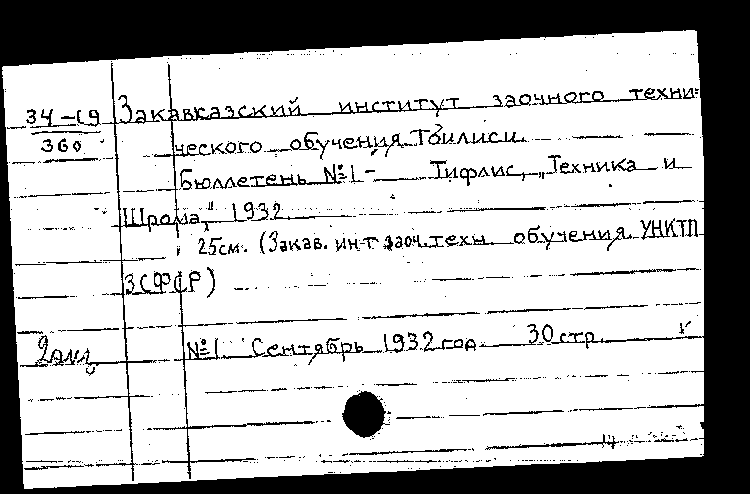 34-19
360
Закавказский институт заочного техни-
ческого обучения. Тбилиси.
Бюллетень №1- Тифлис, „Техника и
Шрома," 1932.
25см. (Закав. ин-т заоч. техн. обучения УНКТП
ЗСФСР)
№1. Сентябрь 1932 год. 30 стр.